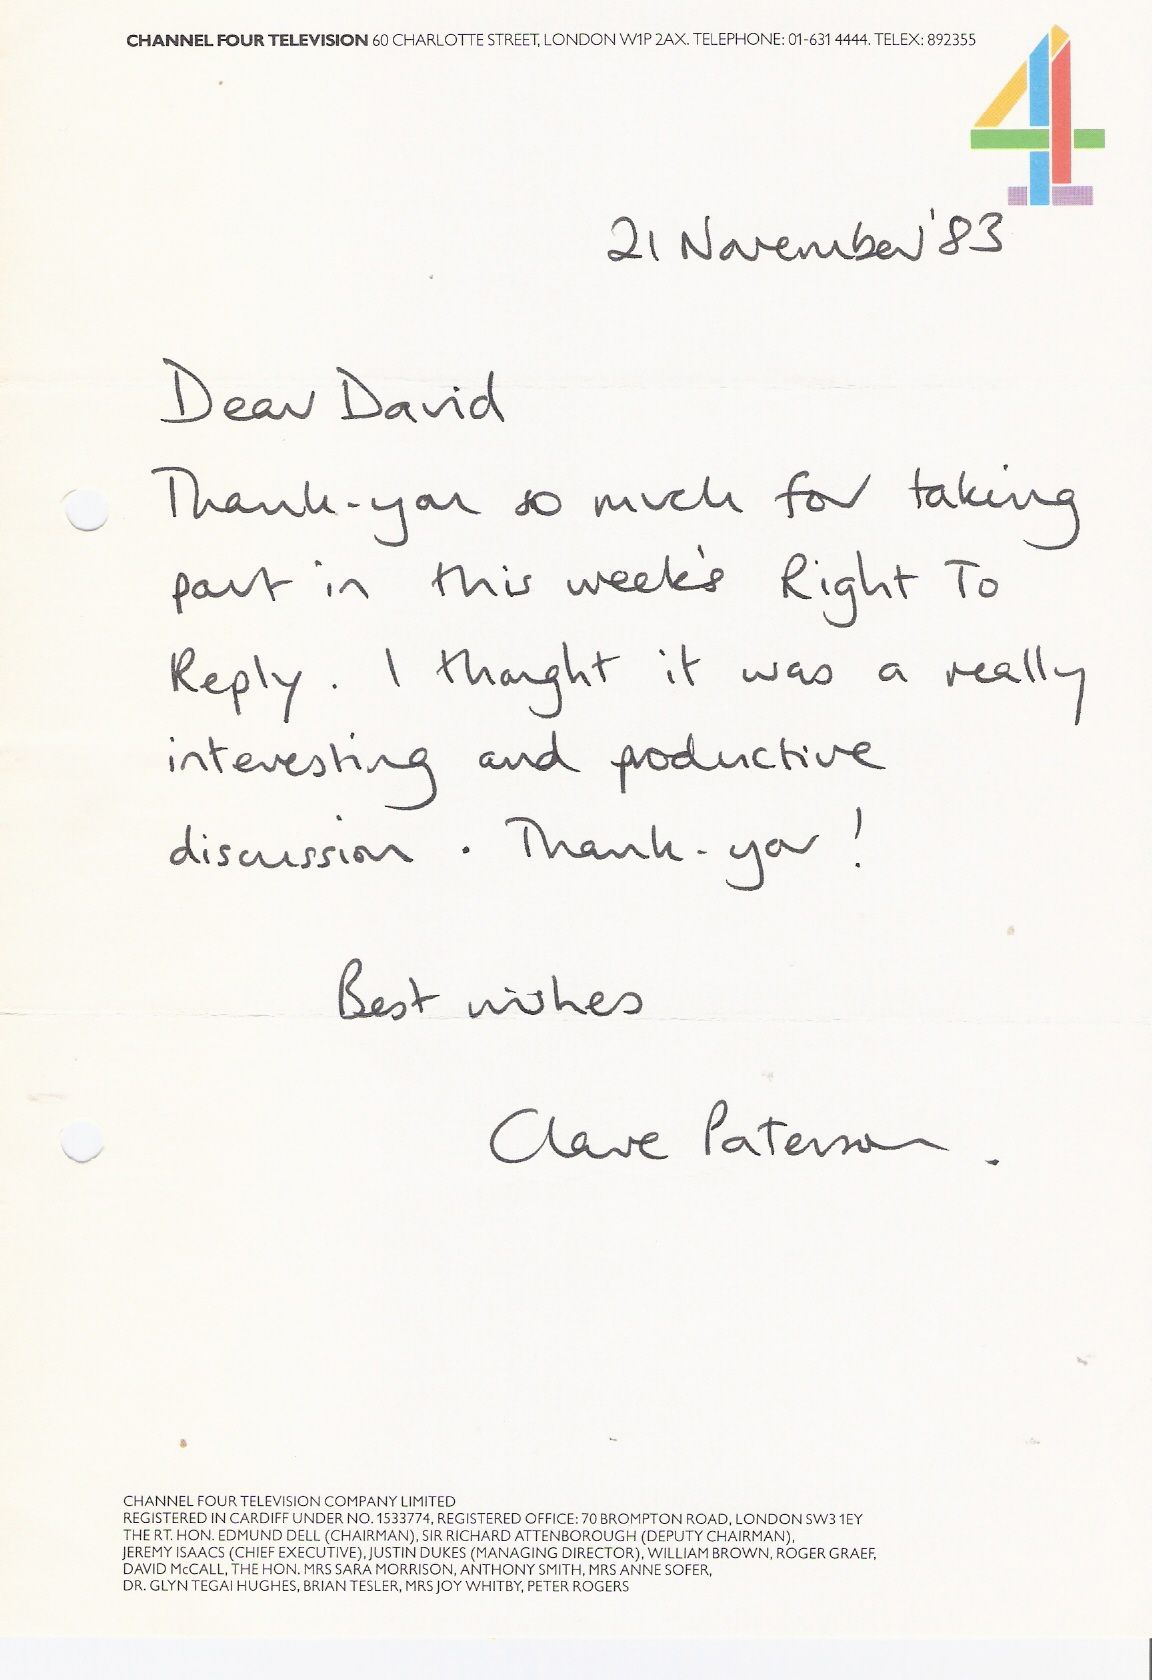 CHANNEL FOUR TELEVISION 60 CHARLOTTE STREET, LONDON W1P 2AX. TELEPHONE: 01-631 4444. TELEX: 892355
4
21 November '83
Dear David
Thank-you so much for taking
part in this week's Right To
Reply. I thought it was a really
interesting and productive
discussion. Thank-you!
Best wishes
Clare Paterson.
CHANNEL FOUR TELEVISION COMPANY LIMITED
REGISTERED IN CARDIFF UNDER NO. 1533774, REGISTERED OFFICE: 70 BROMPTON ROAD, LONDON SW3 1EY
THE RT. HON. EDMUND DELL (CHAIRMAN), SIR RICHARD ATTENBOROUGH (DEPUTY CHAIRMAN),
JEREMY ISAACS (CHIEF EXECUTIVE), JUSTIN DUKES (MANAGING DIRECTOR), WILLIAM BROWN, ROGER GRAEF,
DAVID McCALL, THE HON. MRS SARA MORRISON, ANTHONY SMITH, MRS ANNE SOFER,
DR. GLYN TEGAI HUGHES, BRIAN TESLER, MRS JOY WHITBY, PETER ROGERS